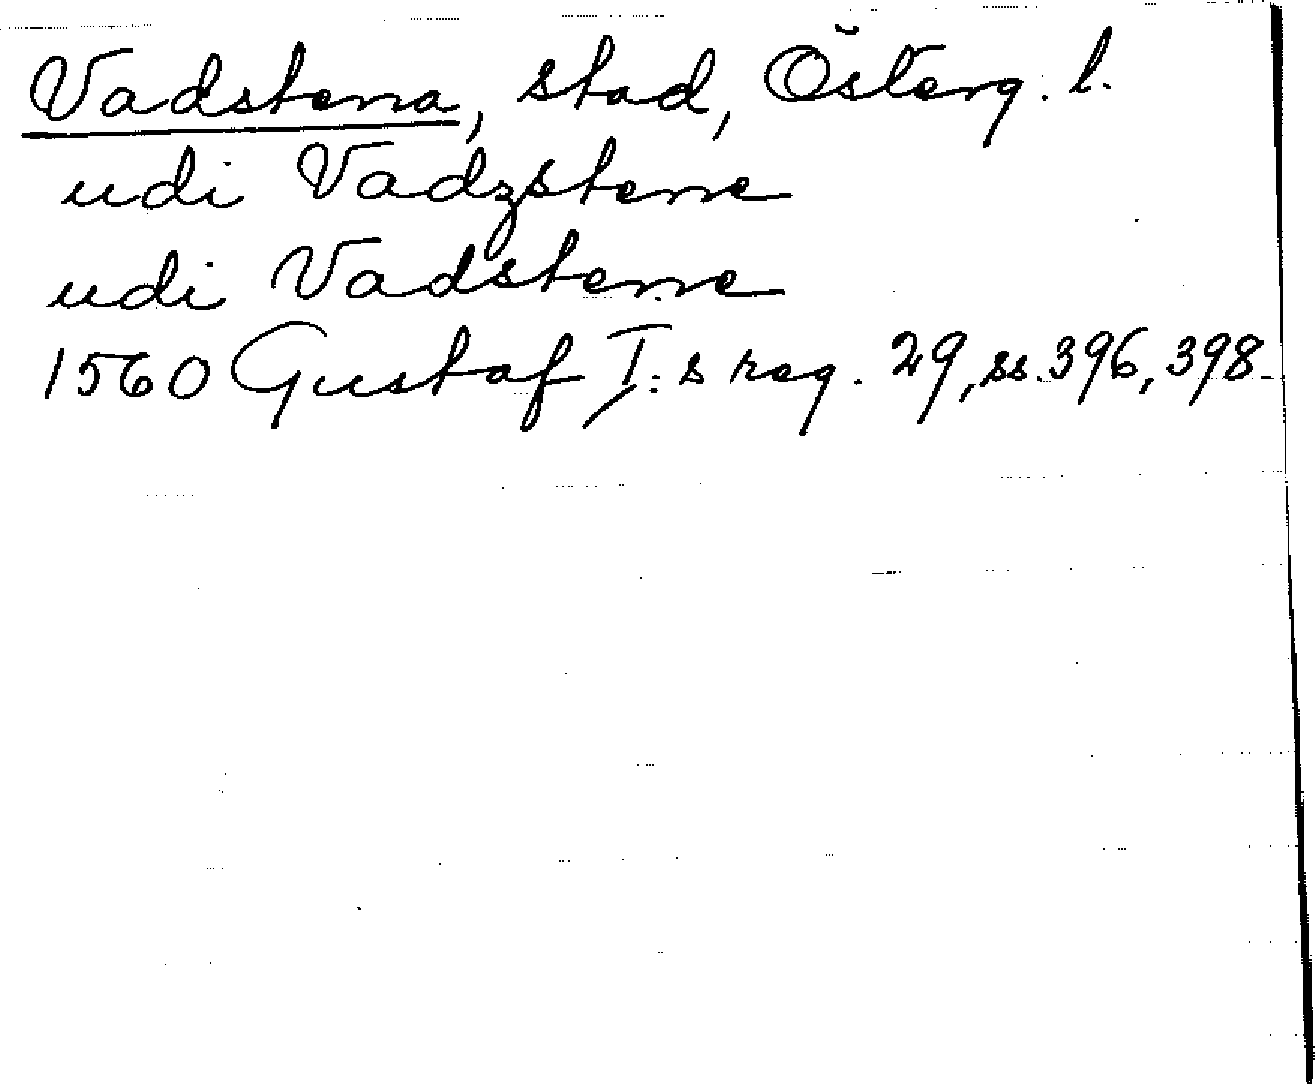 Vadstena, stad, Österg. l.
udi Vadzstene
udi Vadstene
1560 Gustaf I:s reg. 29, ss. 396, 398